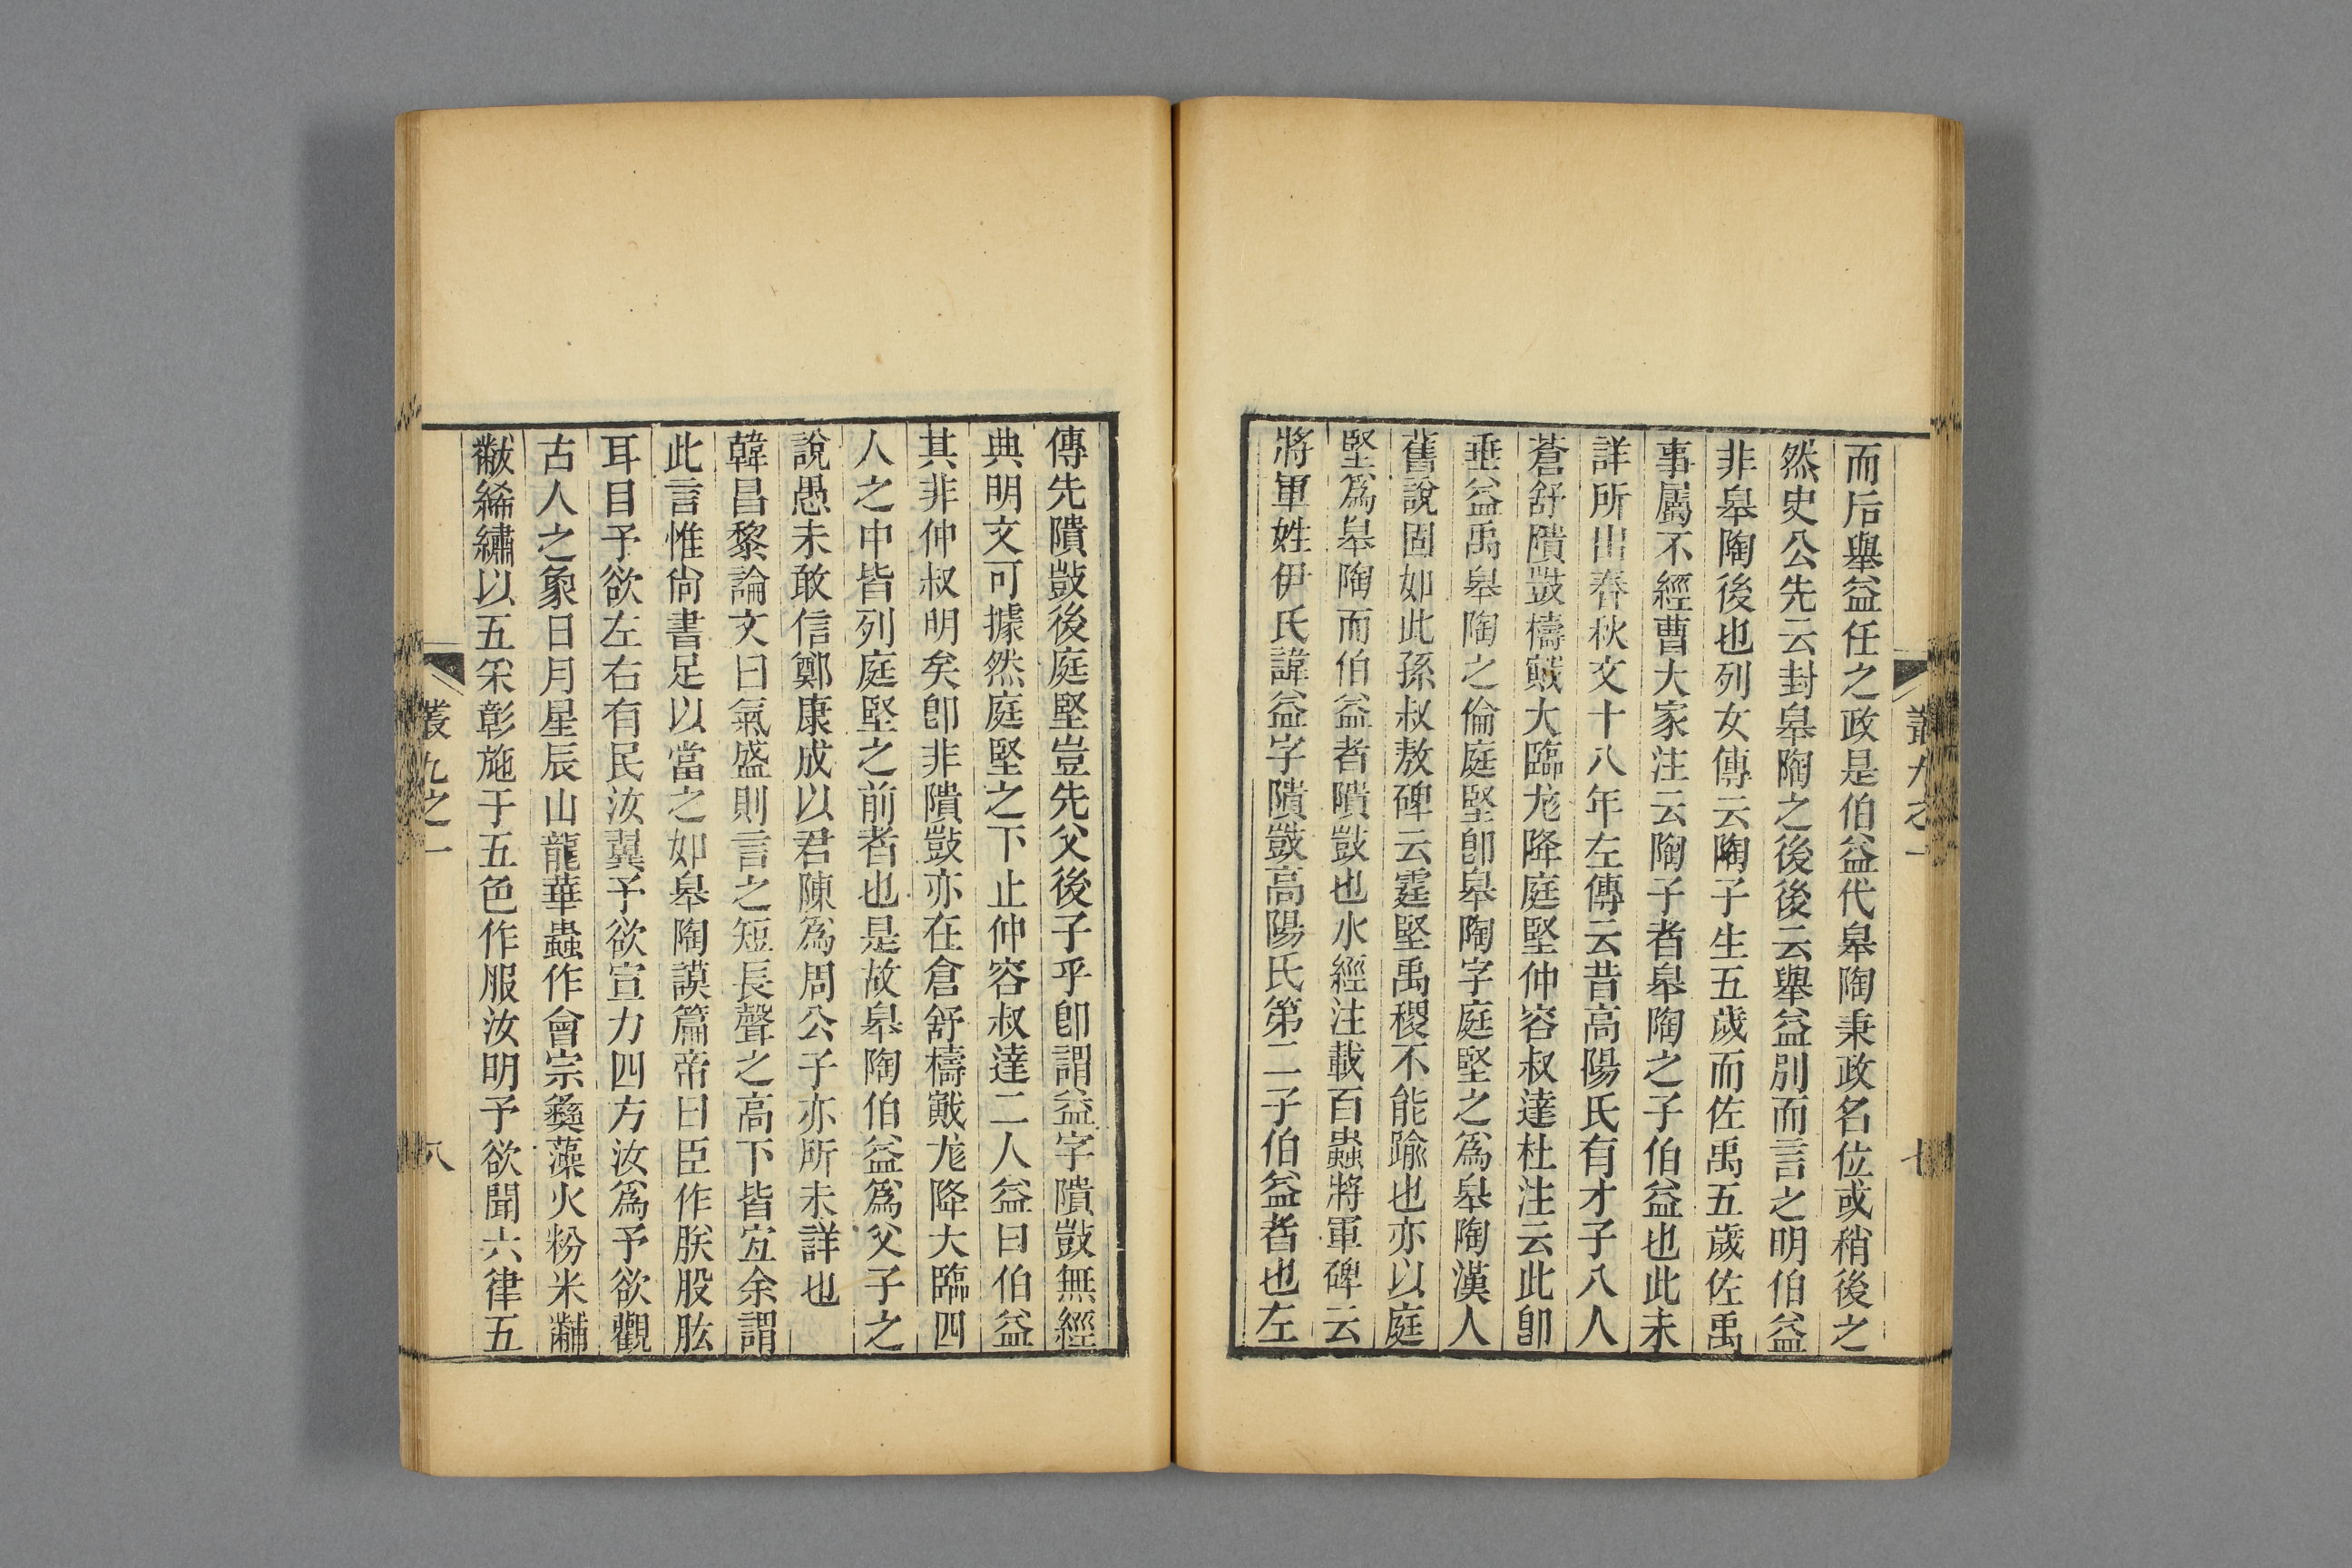 而后舉益任之政是伯益代皋陶秉政名位或稍後之
然史公先云封皋陶之後後云舉益別而言之明伯益
非皋陶後也列女傳云陶子生五歲而佐禹五歲佐禹
事屬不經曹大家注云陶子者皋陶之子伯益也此未
詳所出春秋文十八年左傳云昔高陽氏有才子八人
蒼舒隤敳檮戭大臨尨降庭堅仲容叔達杜注云此卽
垂益禹皋陶之倫庭堅卽皋陶字庭堅之爲皋陶漢人
舊說固如此孫叔敖碑云霆堅禹稷不能踰也亦以庭
堅爲皋陶而伯益者隤敳也水經注載百蟲將軍碑云
將軍姓伊氏諱益字隤敳高陽氏第二子伯益者也左
叢九之一
七
傳先隤敳後庭堅豈先父後子乎卽謂益字隤敳無經
典明文可據然庭堅之下止仲容叔達二人益曰伯益
其非仲叔明矣卽非隤敳亦在倉舒檮戭尨降大臨四
人之中皆列庭堅之前者也是故皋陶伯益爲父子之
說愚未敢信鄭康成以君陳爲周公子亦所未詳也
韓昌黎論文曰氣盛則言之短長聲之高下皆宜余謂
此言惟尙書足以當之如皋陶謨篇帝曰臣作朕股肱
耳目予欲左右有民汝翼予欲宣力四方汝爲予欲觀
古人之象日月星辰山龍華蟲作會宗彝藻火粉米黼
黻絺繡以五采彰施于五色作服汝明予欲聞六律五
叢九之一
八